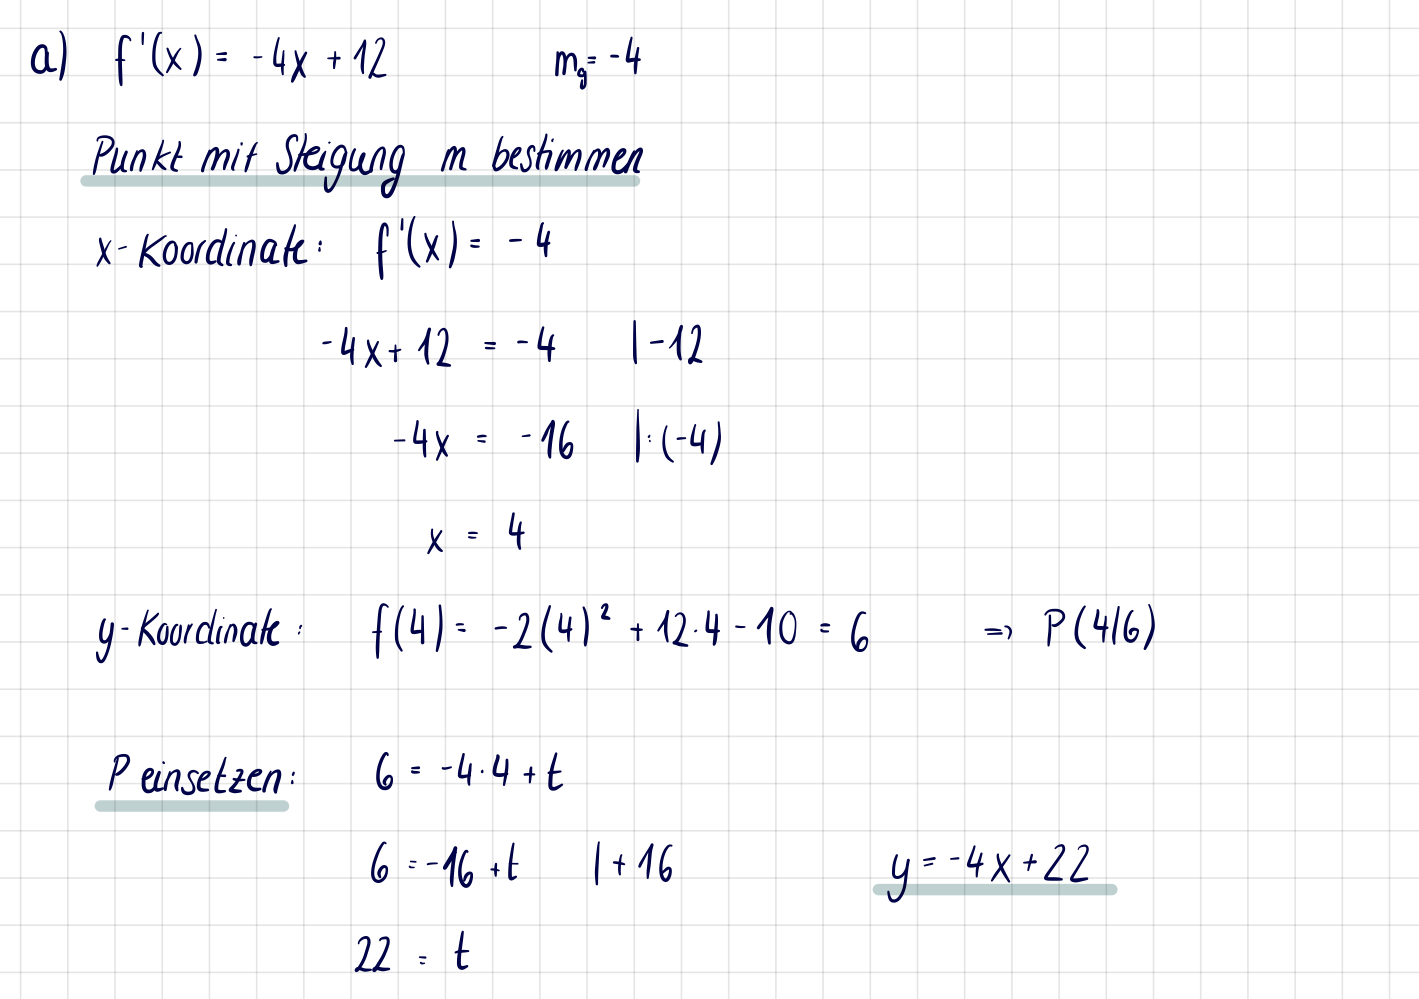 a) f'(x) = -4x + 12 m_g = -4
Punkt mit Steigung m bestimmen
x-Koordinate: f'(x) = -4
-4x + 12 = -4 | -12
-4x = -16 | : (-4)
x = 4
y-Koordinate: f(4) = -2(4)² + 12·4 - 10 = 6 => P(4|6)
P einsetzen: 6 = -4·4 + t
6 = -16 + t | + 16 y = -4x + 22
22 = t